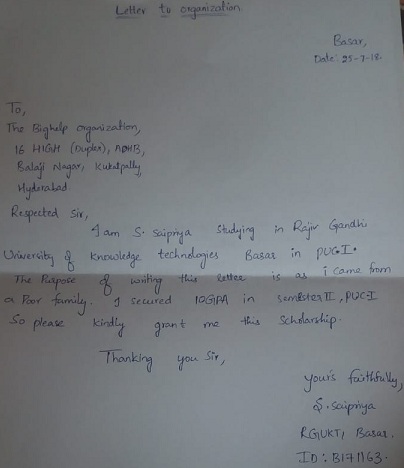 Letter to organization
Basar,
Date: 25-7-18.
To,
The Bighelp organization,
16 HIGH (Duplex), APHB,
Balaji Nagar, Kukatpally,
Hyderabad
Respected Sir,
I am S. Saipriya Studying in Rajiv Gandhi
University of Knowledge technologies Basar in PUC-I.
The Purpose of writing this letter is as i came from
a Poor family. I secured 10GPA in semester II, PUC-I
So please kindly grant me this Scholarship.
Thanking you Sir,
yours faithfully,
S. Saipriya
RGUKT, Basar.
ID: B171163.